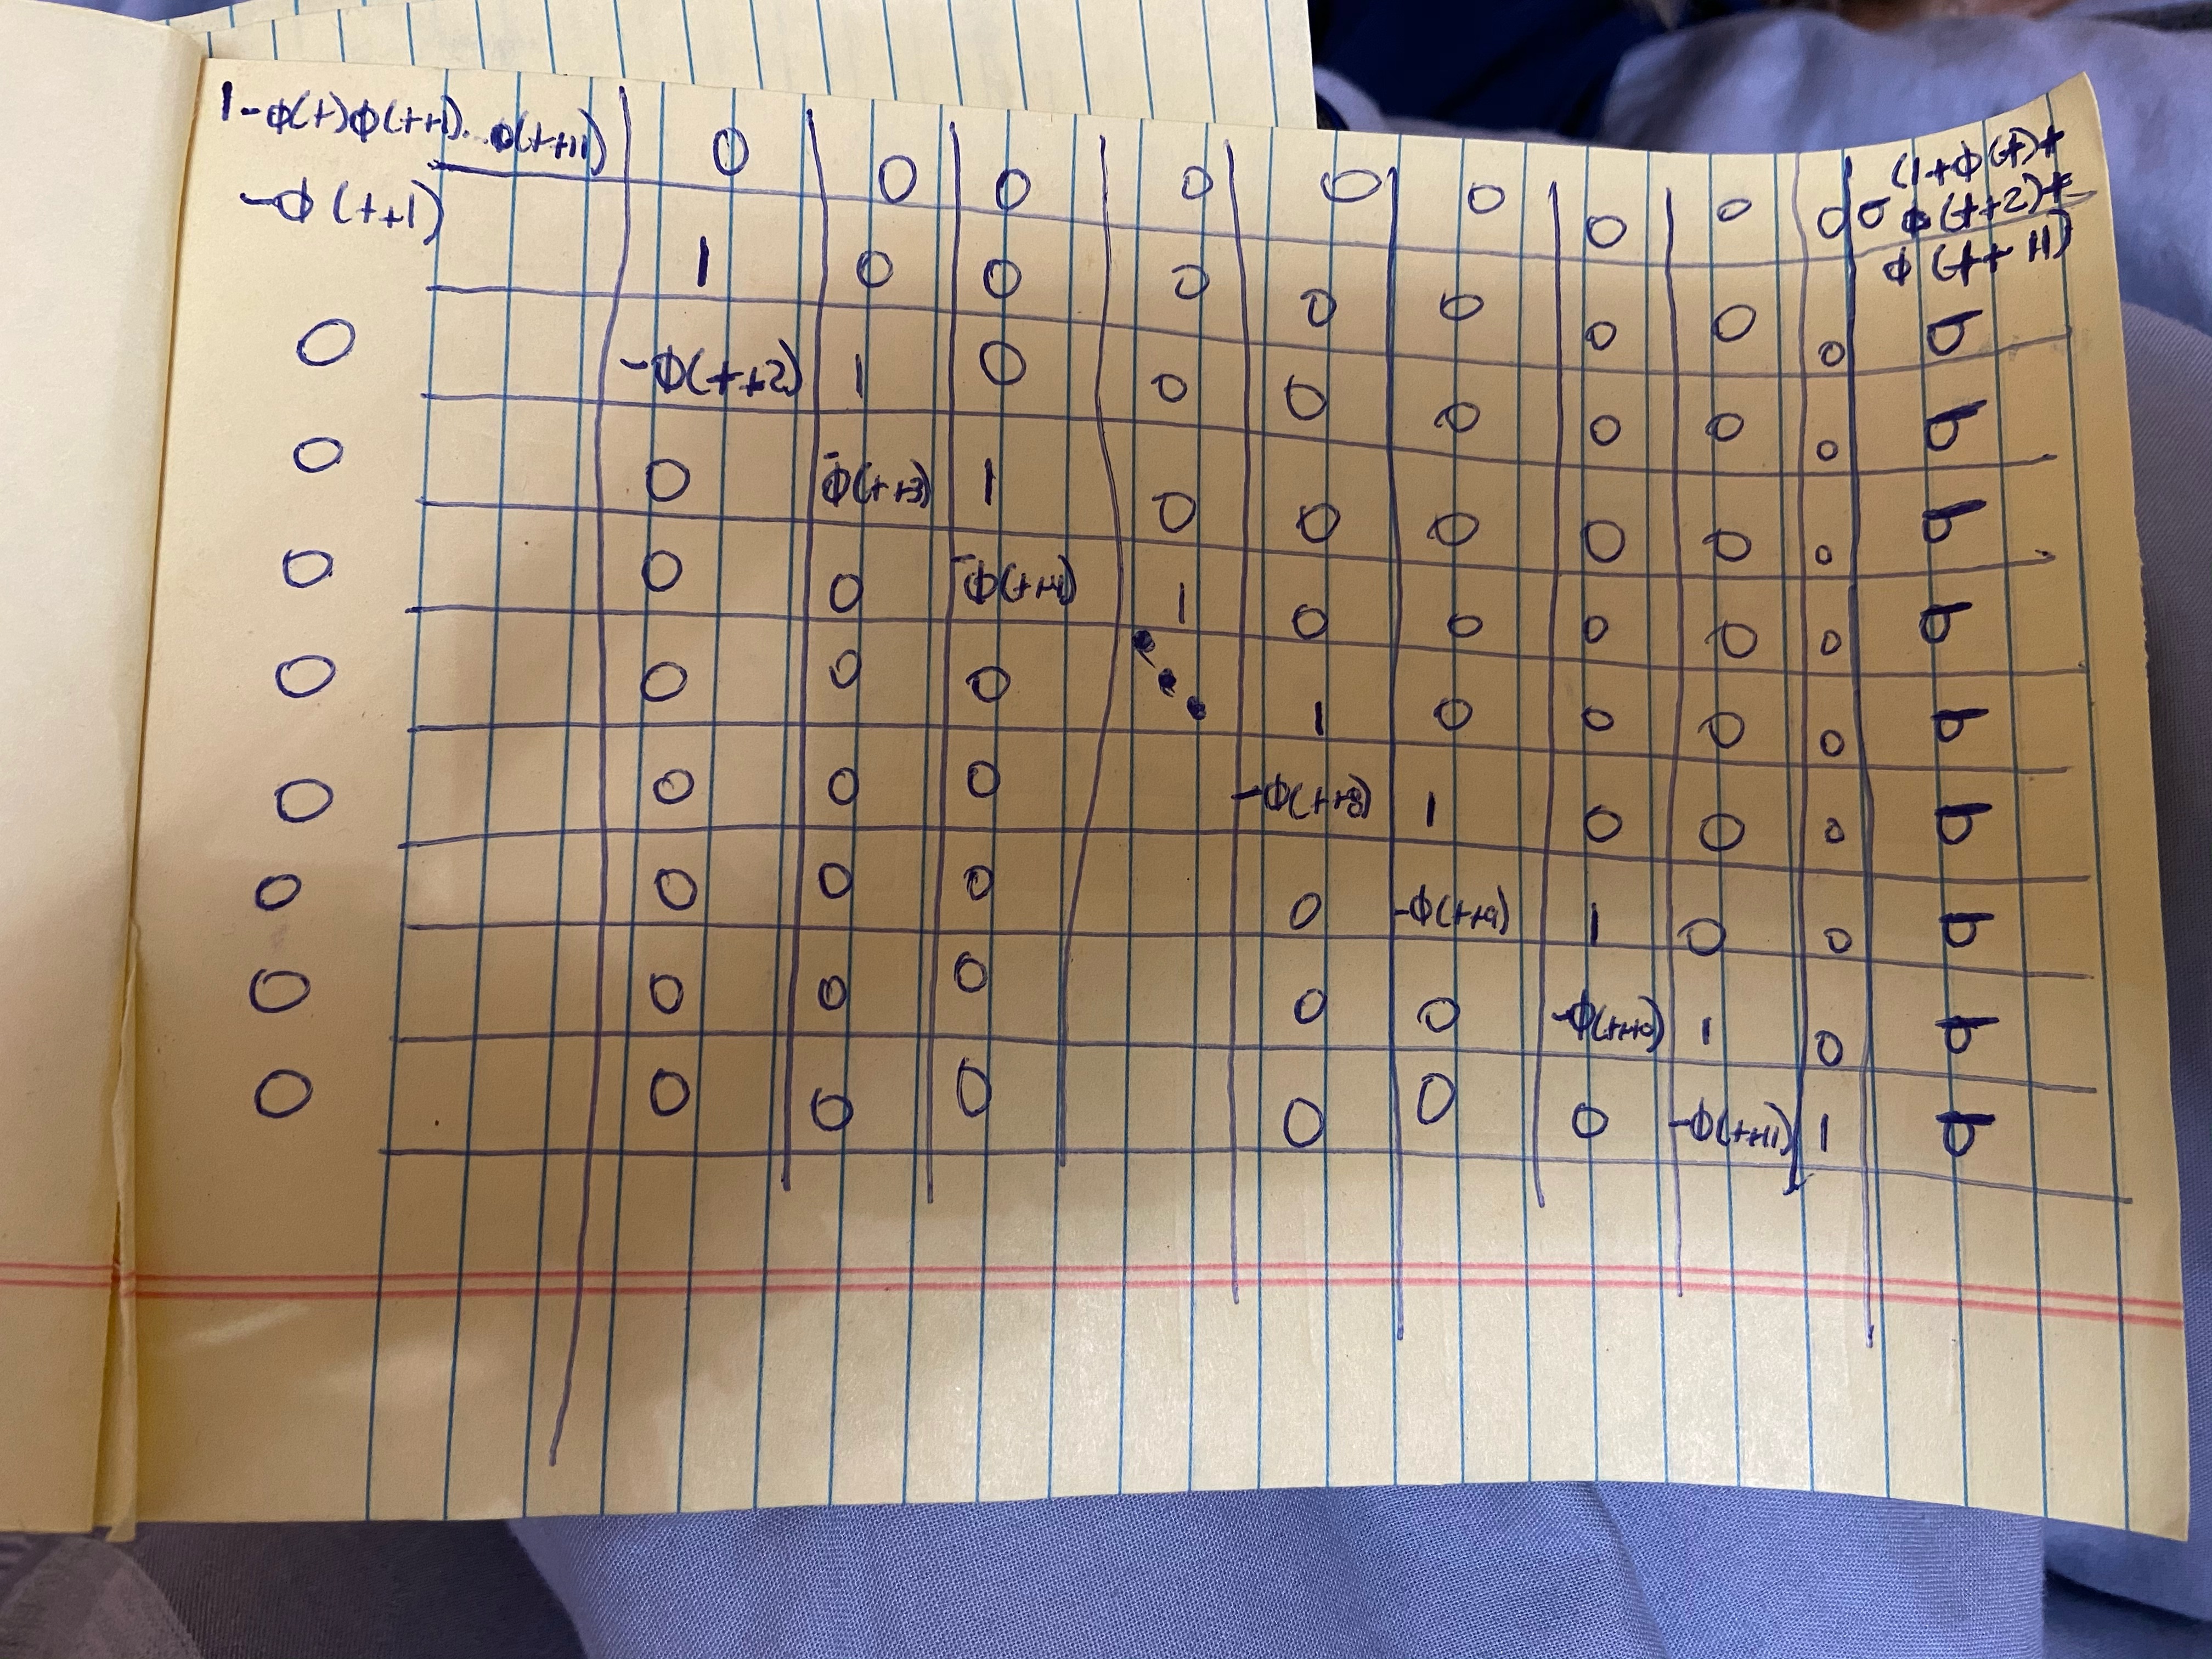 1-ϕ(t)ϕ(t+1)...ϕ(t+11) 0 0 0 0 0 0 0 0 0 σ (1+ϕ(t)+
ϕ(t+2)+
ϕ(t+11)
-ϕ(t+1) 1 0 0 0 0 0 0 0 0 σ
0 -ϕ(t+2) 1 0 0 0 0 0 0 0 σ
0 0 -ϕ(t+3) 1 0 0 0 0 0 0 σ
0 0 0 -ϕ(t+4) 1 0 0 0 0 0 σ
0 0 0 0 1 0 0 0 0 σ
0 0 0 0 -ϕ(t+8) 1 0 0 0 σ
0 0 0 0 0 -ϕ(t+9) 1 0 0 σ
0 0 0 0 0 0 -ϕ(t+10) 1 0 σ
0 0 0 0 0 0 0 -ϕ(t+11) 1 σ